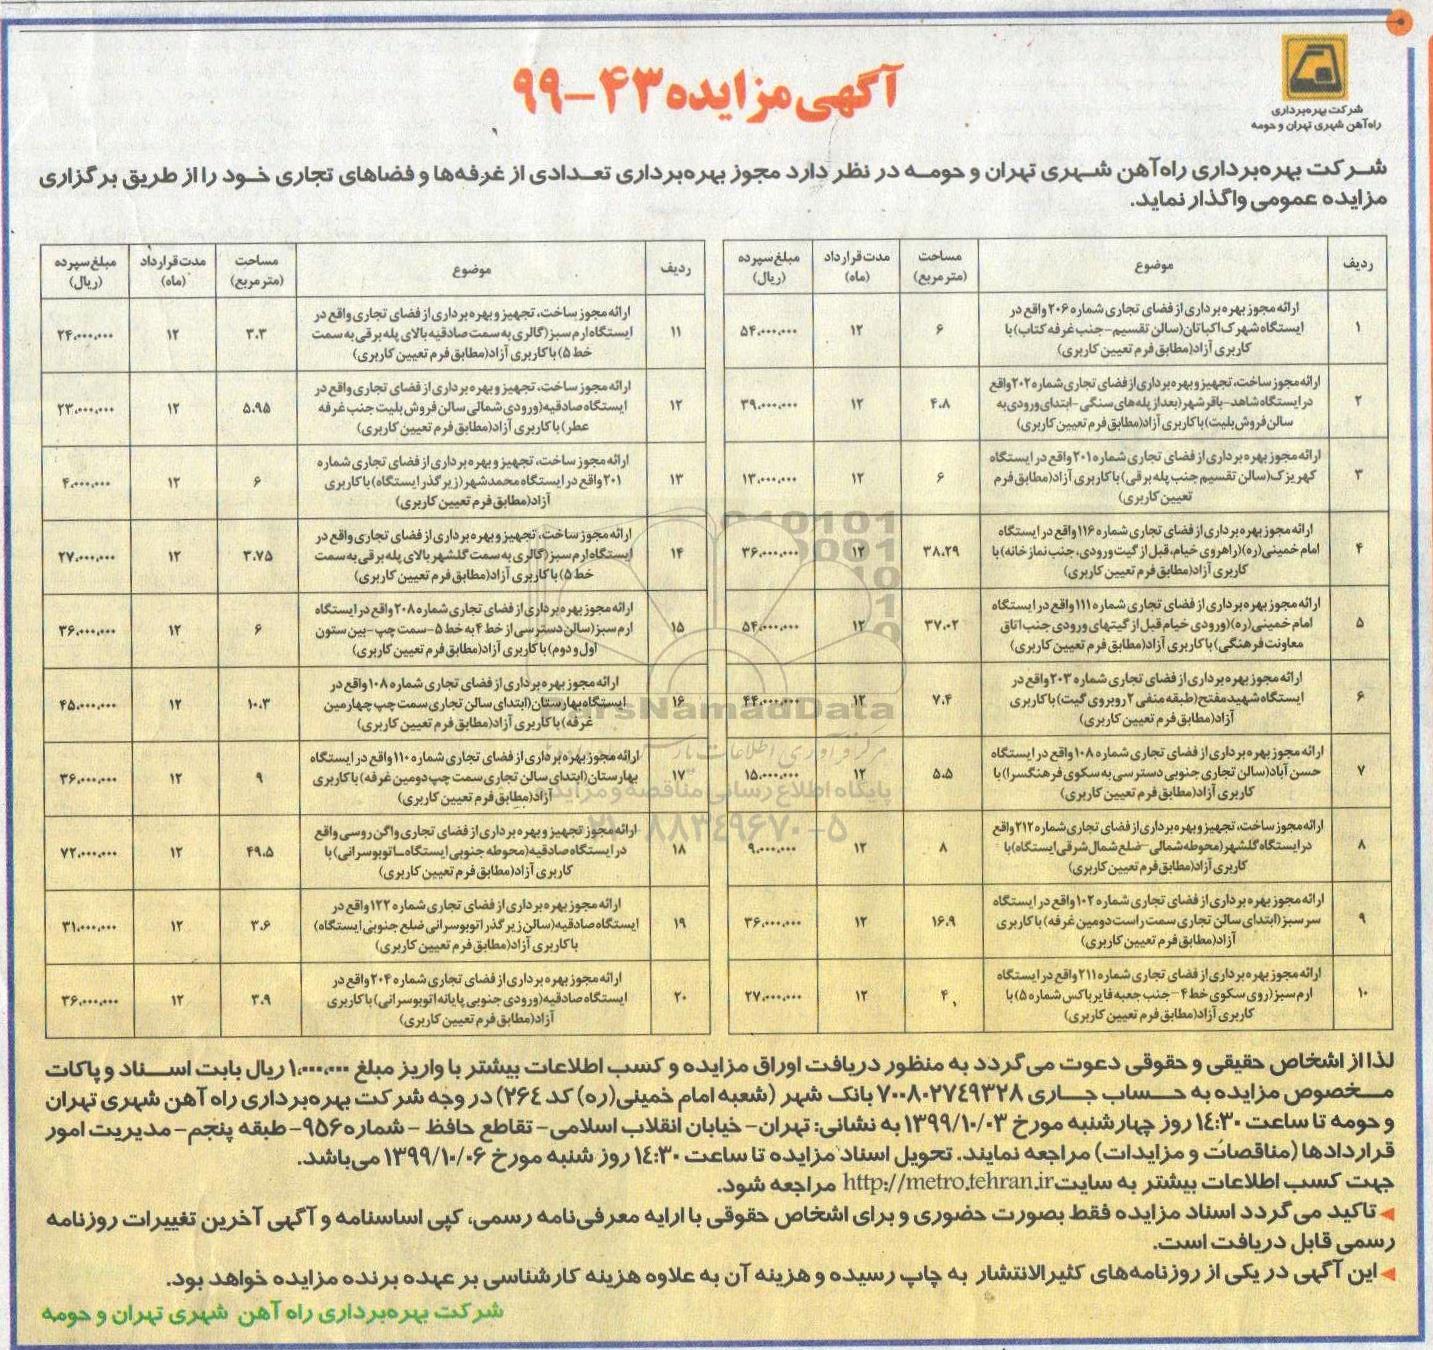 شرکت بهره‌برداری
راه‌آهن شهری تهران و حومه
آگهی مزایده ۴۳-۹۹
شرکت بهره‌برداری راه‌آهن شهری تهران و حومه در نظر دارد مجوز بهره‌برداری تعدادی از غرفه‌ها و فضاهای تجاری خود را از طریق برگزاری
مزایده عمومی واگذار نماید.
ردیف موضوع مساحت (مترمربع) مدت قرارداد (ماه) مبلغ سپرده (ریال)
۱ ارائه مجوز بهره‌برداری از فضای تجاری شماره ۲۰۶ واقع در
ایستگاه شهرک اکباتان (سالن تقسیم - جنب غرفه کتاب) با
کاربری آزاد (مطابق فرم تعیین کاربری)
۶ ۱۲ ۵۴،۰۰۰،۰۰۰
۲ ارائه مجوز ساخت، تجهیز و بهره‌برداری از فضای تجاری شماره ۲۰۲ واقع
در ایستگاه شاهد-باقرشهر (بعد از پله‌های سنگی - ابتدای ورودی به
سالن فروش بلیت) با کاربری آزاد (مطابق فرم تعیین کاربری)
۴.۸ ۱۲ ۳۹،۰۰۰،۰۰۰
۳ ارائه مجوز بهره‌برداری از فضای تجاری شماره ۲۰۱ واقع در ایستگاه
کهریزک (سالن تقسیم جنب پله برقی) با کاربری آزاد (مطابق فرم
تعیین کاربری)
۶ ۱۲ ۱۳،۰۰۰،۰۰۰
۴ ارائه مجوز بهره‌برداری از فضای تجاری شماره ۱۱۶ واقع در ایستگاه
امام خمینی(ره) (راهروی خیام، قبل از گیت ورودی، جنب نمازخانه) با
کاربری آزاد (مطابق فرم تعیین کاربری)
۳۸.۲۹ ۱۲ ۳۶،۰۰۰،۰۰۰
۵ ارائه مجوز بهره‌برداری از فضای تجاری شماره ۱۱۱ واقع در ایستگاه
امام خمینی(ره) (ورودی خیام قبل از گیتهای ورودی جنب اتاق
معاونت فرهنگی) با کاربری آزاد (مطابق فرم تعیین کاربری)
۳۷.۰۲ ۱۲ ۵۴،۰۰۰،۰۰۰
۶ ارائه مجوز بهره‌برداری از فضای تجاری شماره ۲۰۳ واقع در
ایستگاه شهید مفتح (طبقه منفی ۲ روبروی گیت) با کاربری
آزاد (مطابق فرم تعیین کاربری)
۷.۴ ۱۲ ۴۴،۰۰۰،۰۰۰
۷ ارائه مجوز بهره‌برداری از فضای تجاری شماره ۱۰۸ واقع در ایستگاه
حسن آباد (سالن تجاری جنوبی دسترسی به سکوی فرهنگسرا) با
کاربری آزاد (مطابق فرم تعیین کاربری)
۵.۵ ۱۲ ۱۵،۰۰۰،۰۰۰
۸ ارائه مجوز ساخت، تجهیز و بهره‌برداری از فضای تجاری شماره ۲۱۲ واقع
در ایستگاه گلشهر (محوطه شمالی - ضلع شمال شرقی ایستگاه) با
کاربری آزاد (مطابق فرم تعیین کاربری)
۸ ۱۲ ۹،۰۰۰،۰۰۰
۹ ارائه مجوز بهره‌برداری از فضای تجاری شماره ۱۰۲ واقع در ایستگاه
سرسبز (ابتدای سالن تجاری سمت راست دومین غرفه) با کاربری
آزاد (مطابق فرم تعیین کاربری)
۱۶.۹ ۱۲ ۳۶،۰۰۰،۰۰۰
۱۰ ارائه مجوز بهره‌برداری از فضای تجاری شماره ۲۱۱ واقع در ایستگاه
ارم سبز (روی سکوی خط ۴ - جنب جعبه فایرباکس شماره ۵) با
کاربری آزاد (مطابق فرم تعیین کاربری)
۴ ۱۲ ۲۷،۰۰۰،۰۰۰
ردیف موضوع مساحت (مترمربع) مدت قرارداد (ماه) مبلغ سپرده (ریال)
۱۱ ارائه مجوز ساخت، تجهیز و بهره‌برداری از فضای تجاری واقع در
ایستگاه ارم سبز (گالری به سمت صادقیه بالای پله برقی به سمت
خط ۵) با کاربری آزاد (مطابق فرم تعیین کاربری)
۳.۳ ۱۲ ۲۴،۰۰۰،۰۰۰
۱۲ ارائه مجوز ساخت، تجهیز و بهره‌برداری از فضای تجاری واقع در
ایستگاه صادقیه (ورودی شمالی سالن فروش بلیت جنب غرفه
عطر) با کاربری آزاد (مطابق فرم تعیین کاربری)
۵.۹۵ ۱۲ ۲۳،۰۰۰،۰۰۰
۱۳ ارائه مجوز ساخت، تجهیز و بهره‌برداری از فضای تجاری شماره
۲۰۱ واقع در ایستگاه محمدشهر (زیر گذر ایستگاه) با کاربری
آزاد (مطابق فرم تعیین کاربری)
۶ ۱۲ ۴،۰۰۰،۰۰۰
۱۴ ارائه مجوز ساخت، تجهیز و بهره‌برداری از فضای تجاری واقع در
ایستگاه ارم سبز (گالری به سمت گلشهر بالای پله برقی به سمت
خط ۵) با کاربری آزاد (مطابق فرم تعیین کاربری)
۳.۷۵ ۱۲ ۲۷،۰۰۰،۰۰۰
۱۵ ارائه مجوز بهره‌برداری از فضای تجاری شماره ۲۰۸ واقع در ایستگاه
ارم سبز (سالن دسترسی از خط ۴ به خط ۵ - سمت چپ - بین ستون
اول و دوم) با کاربری آزاد (مطابق فرم تعیین کاربری)
۶ ۱۲ ۳۶،۰۰۰،۰۰۰
۱۶ ارائه مجوز بهره‌برداری از فضای تجاری شماره ۱۰۸ واقع در
ایستگاه بهارستان (ابتدای سالن تجاری سمت چپ چهارمین
غرفه) با کاربری آزاد (مطابق فرم تعیین کاربری)
۱۰.۳ ۱۲ ۴۵،۰۰۰،۰۰۰
۱۷ ارائه مجوز بهره‌برداری از فضای تجاری شماره ۱۱۰ واقع در ایستگاه
بهارستان (ابتدای سالن تجاری سمت چپ دومین غرفه) با کاربری
آزاد (مطابق فرم تعیین کاربری)
۹ ۱۲ ۳۶،۰۰۰،۰۰۰
۱۸ ارائه مجوز تجهیز و بهره‌برداری از فضای تجاری واگن روسی واقع
در ایستگاه صادقیه (محوطه جنوبی ایستگاه-اتوبوسرانی) با
کاربری آزاد (مطابق فرم تعیین کاربری)
۴۹.۵ ۱۲ ۷۲،۰۰۰،۰۰۰
۱۹ ارائه مجوز بهره‌برداری از فضای تجاری شماره ۱۲۲ واقع در
ایستگاه صادقیه (سالن زیر گذر اتوبوسرانی ضلع جنوبی ایستگاه)
با کاربری آزاد (مطابق فرم تعیین کاربری)
۳.۶ ۱۲ ۳۱،۰۰۰،۰۰۰
۲۰ ارائه مجوز بهره‌برداری از فضای تجاری شماره ۲۰۴ واقع در
ایستگاه صادقیه (ورودی جنوبی پایانه اتوبوسرانی) با کاربری
آزاد (مطابق فرم تعیین کاربری)
۳.۹ ۱۲ ۳۶،۰۰۰،۰۰۰
ParsNamadData
پایگاه اطلاع رسانی مناقصه و مزایده
۰۲۱-۸۸۳۴۹۶۷۰-۵
لذا از اشخاص حقیقی و حقوقی دعوت می‌گردد به منظور دریافت اوراق مزایده و کسب اطلاعات بیشتر با واریز مبلغ ۱،۰۰۰،۰۰۰ ریال بابت اسناد و پاکات
مخصوص مزایده به حساب جاری ۷۰۰۸۰۲۷۴۹۳۲۸ بانک شهر (شعبه امام خمینی(ره) کد ۲۶۴) در وجه شرکت بهره‌برداری راه آهن شهری تهران
و حومه تا ساعت ۱۴:۳۰ روز چهارشنبه مورخ ۱۳۹۹/۱۰/۰۳ به نشانی: تهران- خیابان انقلاب اسلامی- تقاطع حافظ - شماره ۹۵۶- طبقه پنجم- مدیریت امور
قراردادها (مناقصات و مزایدات) مراجعه نمایند. تحویل اسناد مزایده تا ساعت ۱۴:۳۰ روز شنبه مورخ ۱۳۹۹/۱۰/۰۶ می‌باشد.
جهت کسب اطلاعات بیشتر به سایت http://metro.tehran.ir مراجعه شود.
◄ تاکید می‌گردد اسناد مزایده فقط بصورت حضوری و برای اشخاص حقوقی با ارایه معرفی‌نامه رسمی، کپی اساسنامه و آگهی آخرین تغییرات روزنامه
رسمی قابل دریافت است.
◄ این آگهی در یکی از روزنامه‌های کثیرالانتشار به چاپ رسیده و هزینه آن به علاوه هزینه کارشناسی بر عهده برنده مزایده خواهد بود.
شرکت بهره‌برداری راه آهن شهری تهران و حومه